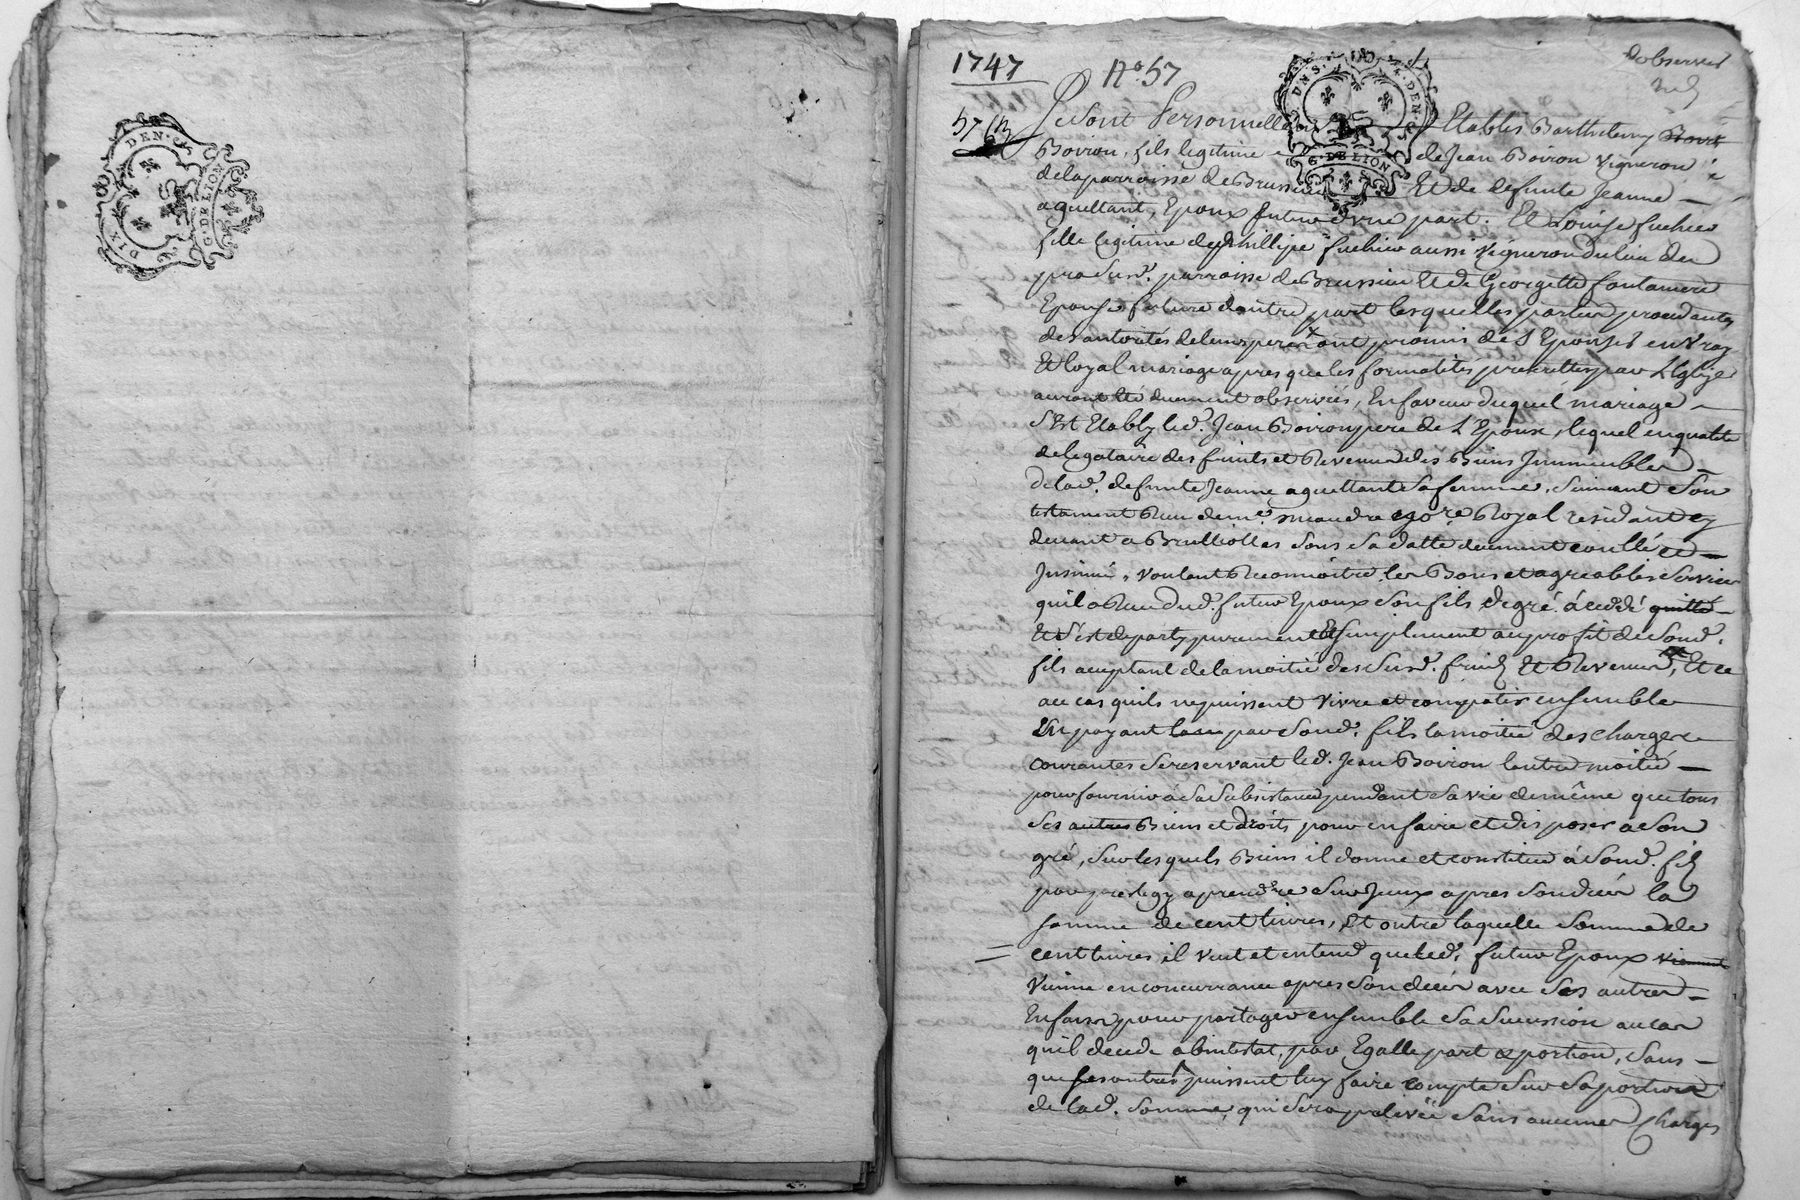 DIX DEN.
G. DE LION
1747
No. 57
d'observer
57 (B
DIX DEN.
G. DE LION
Se sont Personnellem Etablis Barthelemy
Boiron, fils legitime de Jean Boiron vigneron
de la parroisse de Brussieu Et de defunte Jeanne
aguettant, Epoux futur d'une part. Et Louise
fille legitime de phillipe aussi vigneron du lieu de
parroisse de Brussieu Et de Georgette
Epouse future d'autre part lesquelles parties procedantes
des autorités de leurs peres ont promis de S'Epouser en vray
Et loyal mariage apres que les formalités prescrittes par L'Eglize
auront Eté duement observées, En faveur duquel mariage
S'Est Etably led. Jean Boiron pere de L'Epoux, lequel en qualité
de legataire des fruits et Revenus des Biens Immeubles
de lad. defunte Jeanne aguettant Sa femme, Suivant Son
testament Reçu de me. Royal residant cy
devant a Brulliolles Sous Sa datte duement controllé et
Jnsinué, voulant Reconnoitre les Bons et agreables Services
qu'il a Reçu dud. futur Epoux Son fils de gré á cedé quitté
Et S'est departy purement Et Simplement au profit de Sond.
fils acceptant de la moitié des Susd. fruits Et Revenus, Et ce
au cas qu'ils ne puissent vivre et compatir ensemble
En payant par Sond. fils la moitié des charges
courantes Se reservant led. Jean Boiron l'autre moitié
pour fournir á Sa Subsistance pendant Sa vie de même que tous
Ses autres Biens et droits pour en faire et disposer á Son
gré, Sur lesquels Biens il donne et constitue á Sond. fils
a prendre Sur Jceux apres Son decés la
somme de cent livres, Et outre laquelle Somme de
cent livres il veut et entend que led. futur Epoux viennent
vienne en concurrance apres Son decés avec Ses autres
Enfans pour partager ensemble Sa Sucession au cas
qu'il decede abintestat, par Egalle part & portion, Sans
que Ses autres puissent luy faire compte Sur Sa portion
de lad. Somme, qui Sera prelevée Sans aucunes Charges